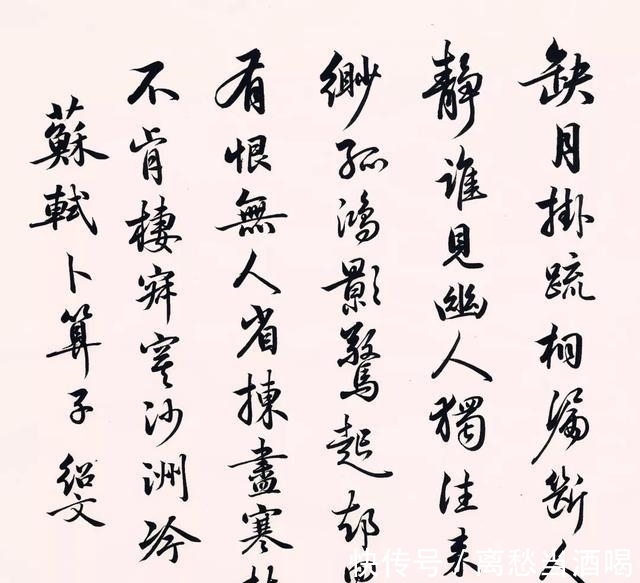 缺月掛疏桐漏斷人
靜誰見幽人獨往来
緲孤鴻影驚起却
有恨無人省揀盡寒
不肯棲寂寞沙洲冷
蘇軾卜算子 紹文
快传号/离愁当酒喝